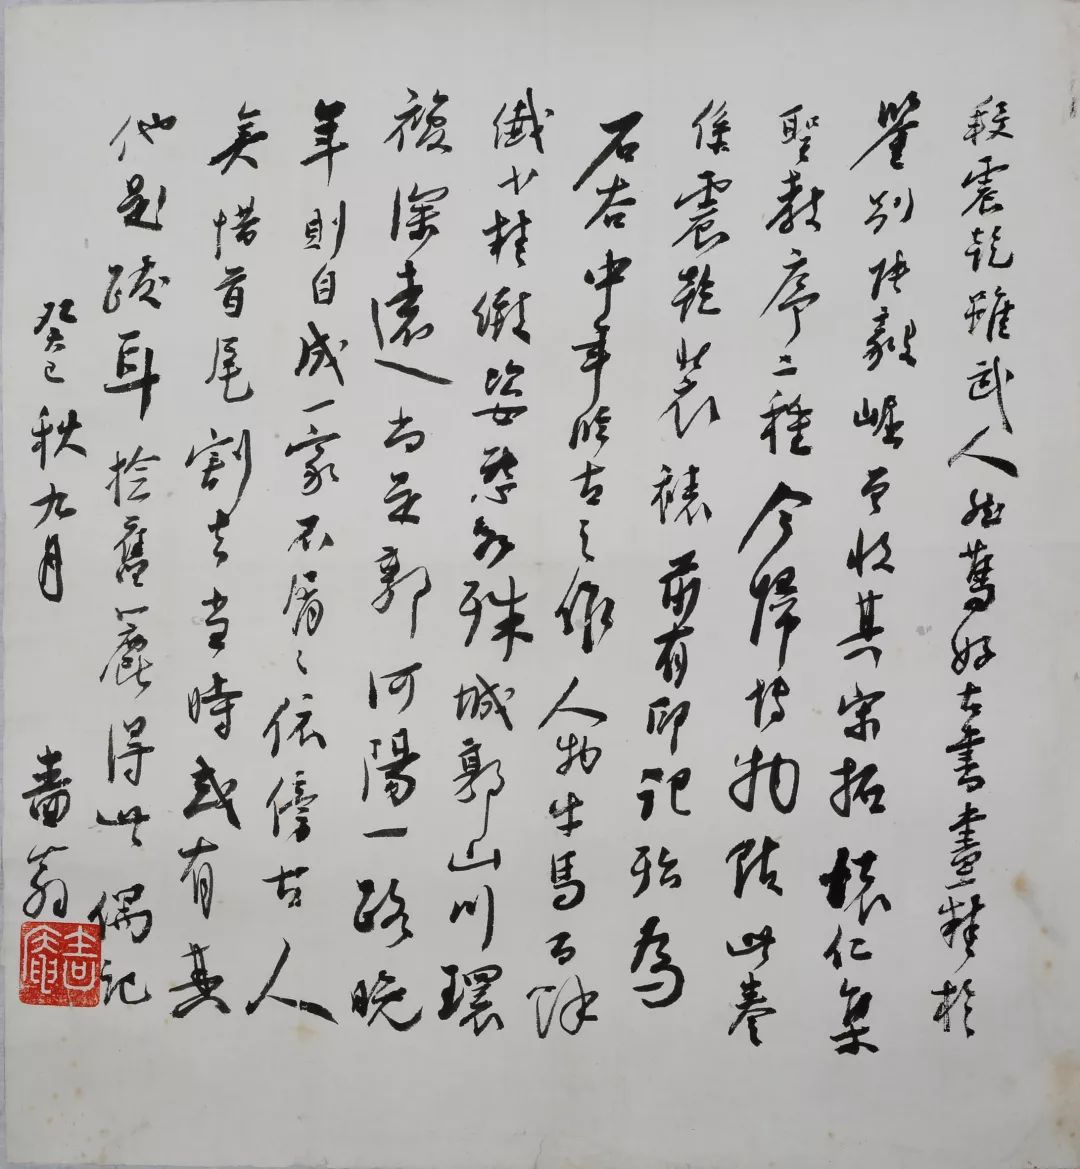 段震乾雖武人然篤好古書畫精於
鑒別陝毅嶇曾收其宋拓懷仁集
聖教序二種今歸博物院此卷
係震乾裝褾前有印記殆為
石谷中年臨古之作人物牛馬百餘
纖少精微姿態各殊城郭山川環
複深遠尚是郭河陽一路晚
年則自成一家不屑々依傍古人
矣惜首尾割去當時或有其
他題跋耳撿舊簏得此偶記
癸巳秋九月 嗇翁